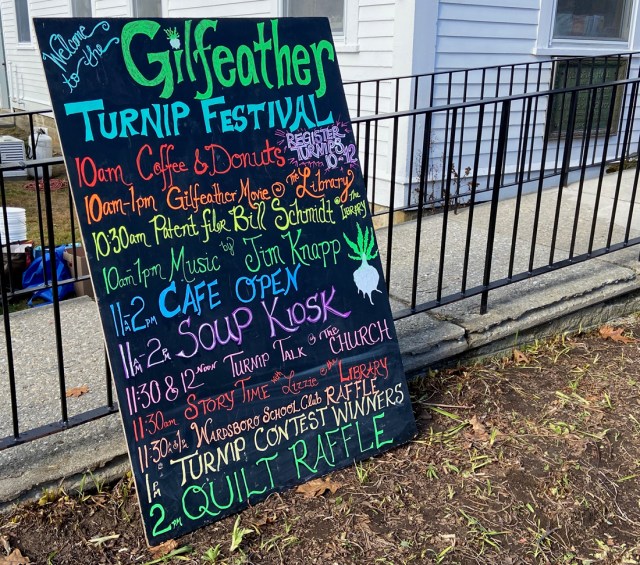 Welcome
to the
Gilfeather
TURNIP FESTIVAL
10am Coffee & Donuts
REGISTER
TURNIPS
10-12
10am-1pm Gilfeather Movie @ The Library
10:30am Patent filer Bill Schmidt @ The LIBRARY
10am-1pm Music by Jim Knapp
11AM-2PM CAFE OPEN
11AM-2PM SOUP KIOSK
11:30 & 12 Noon TURNIP TALK @ The CHURCH
11:30am STORY TIME with Lizzie @ the LIBRARY
WARDSBORO SCHOOL CLUB RAFFLE
1PM TURNIP CONTEST WINNERS
2PM QUILT RAFFLE